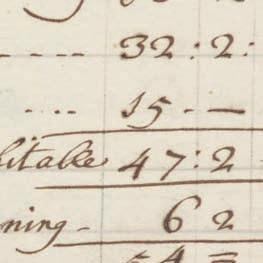 ---- 32:2:
.... 15.-—
hitable 47:2
ning - 62